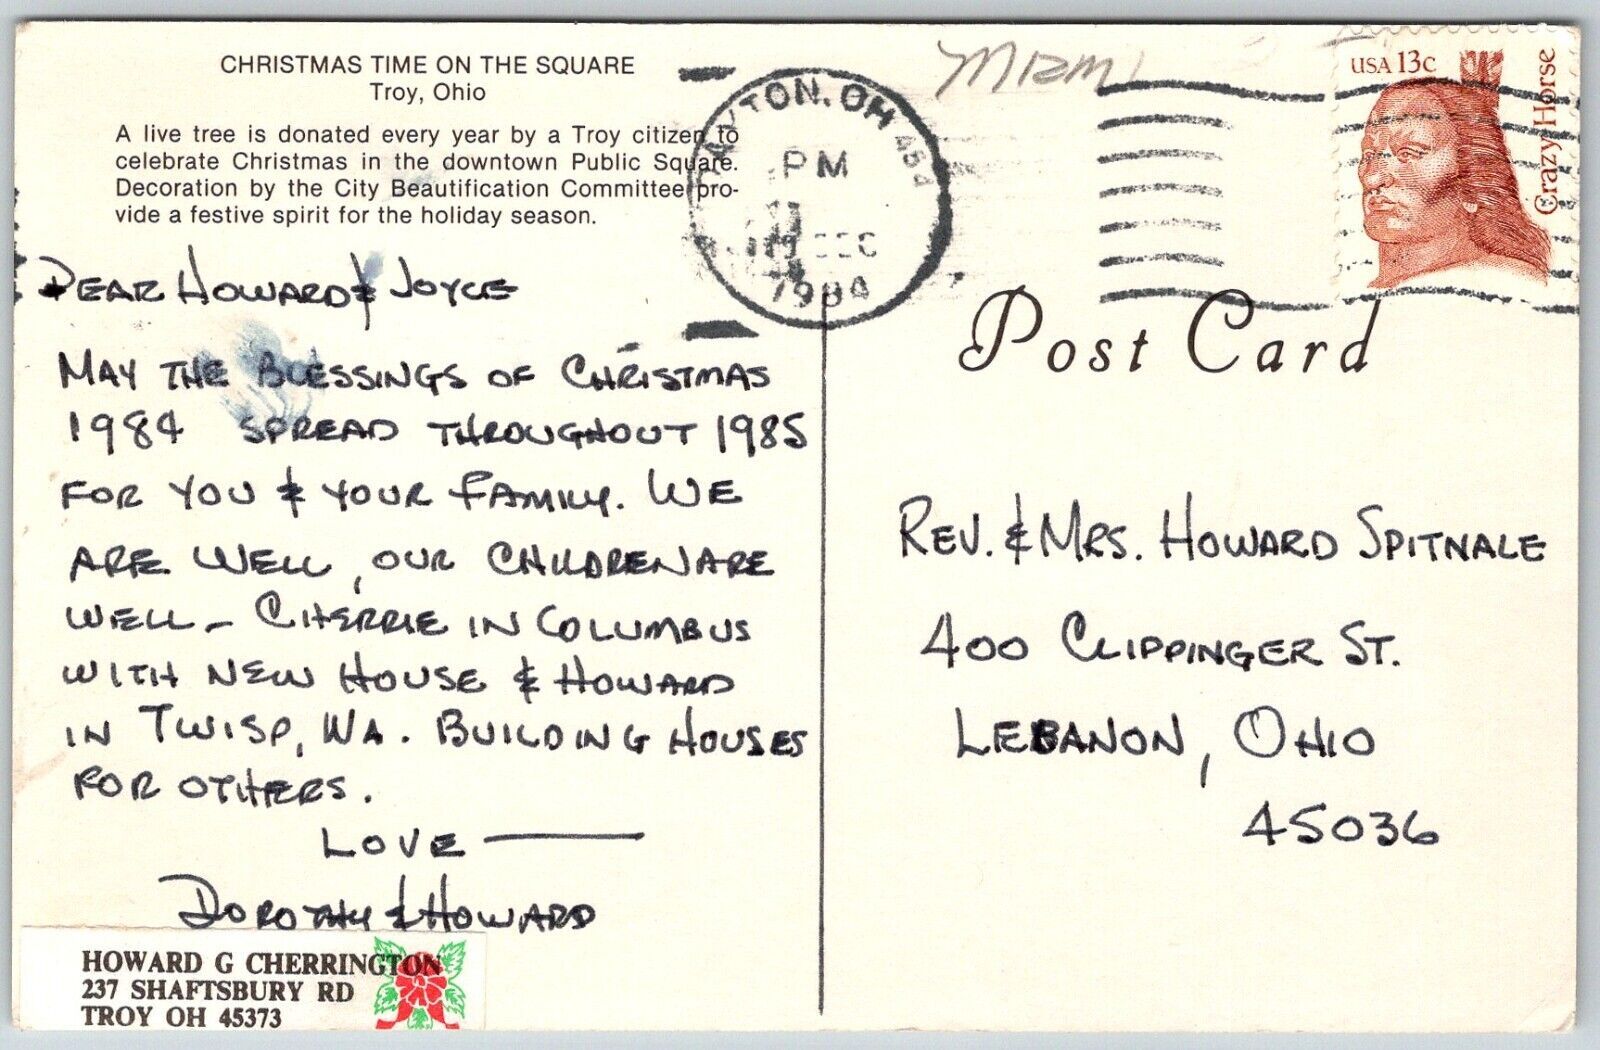 CHRISTMAS TIME ON THE SQUARE
Troy, Ohio
A live tree is donated every year by a Troy citizen to
celebrate Christmas in the downtown Public Square.
Decoration by the City Beautification Committee pro-
vide a festive spirit for the holiday season.
DEAR HOWARD & JOYCE
MAY THE BLESSINGS OF CHRISTMAS
1984 SPREAD THROUGHOUT 1985
FOR YOU & YOUR FAMILY. WE
ARE WELL, OUR CHILDREN ARE
WELL - CHERRIE IN COLUMBUS
WITH NEW HOUSE & HOWARD
IN TWISP, WA. BUILDING HOUSES
FOR OTHERS.
LOVE —
DOROTHY & HOWARD
HOWARD G CHERRINGTON
237 SHAFTSBURY RD
TROY OH 45373
DAYTON, OH 454
PM
DEC
1984
MIAMI
USA 13c
Crazy Horse
Post Card
REV. & MRS. HOWARD SPITNALE
400 CLIPPINGER ST.
LEBANON, OHIO
45036